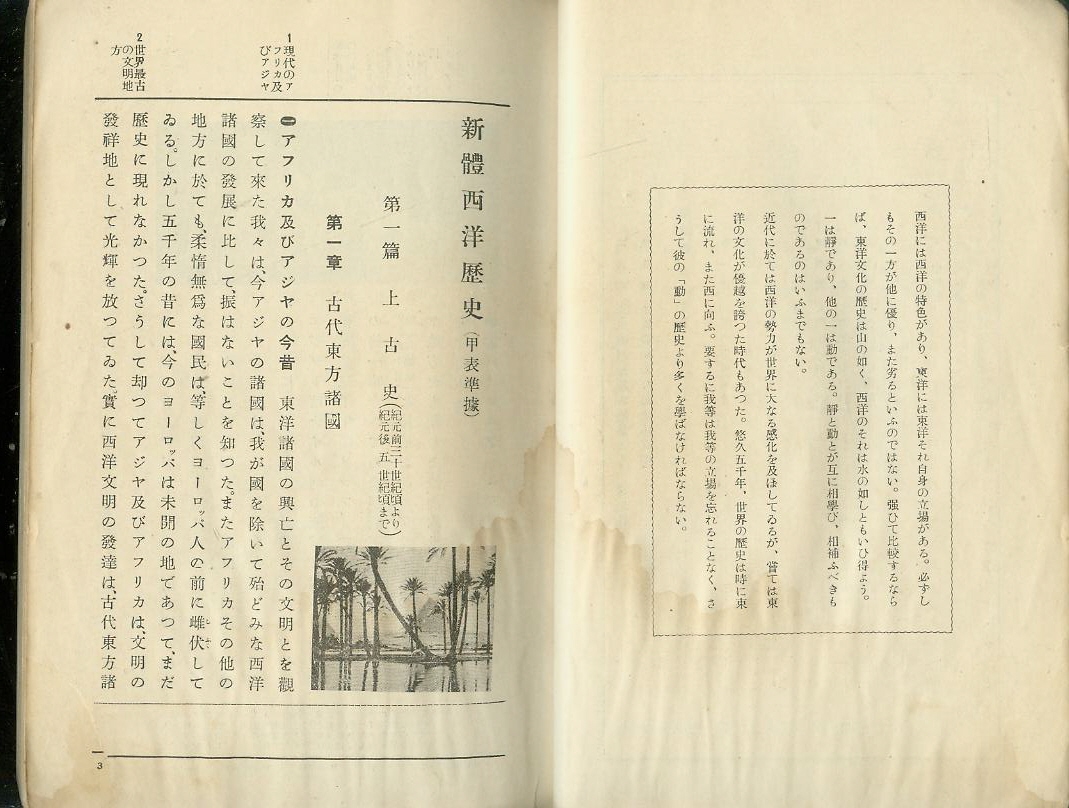 西洋には西洋の特色があり、東洋には東洋それ自身の立場がある。必ずし
もその一方が他に優り、また劣るといふのではない。强ひて比較するなら
ば、東洋文化の歷史は山の如く、西洋のそれは水の如しともいひ得よう。
一は靜であり、他の一は動である。靜と動とが互に相學び、相補ふべきも
のであるのはいふまでもない。
近代に於ては西洋の勢力が世界に大なる感化を及ほしてゐるが、嘗ては東
洋の文化が優越を誇つた時代もあつた。悠久五千年、世界の歷史は時に東
に流れ、また西に向ふ。要するに我等は我等の立場を忘れることなく、さ
うして彼の「動」の歷史より多くを學ばなければならない。
新體西洋歷史（甲表準據）
第一篇 上古史（紀元前三十世紀頃より
紀元後五世紀頃まで）
第一章 古代東方諸國
1現代のア
フリカ及
びアジヤ
㊀アフリカ及びアジヤの今昔 東洋諸國の興亡とその文明とを觀
察して來た我々は、今アジヤの諸國は、我が國を除いて殆どみな西洋
諸國の發展に比して、振はないことを知つた。またアフリカその他の
地方に於ても、柔惰無爲な國民は、等しくヨーロッパ人の前に雌伏して
2世界最古
の文明地
方
ゐる。しかし五千年の昔には、今のヨーロッパは未開の地であつて、まだ
歷史に現れなかつた。さうして却つてアジヤ及びアフリカは、文明の
發祥地として光輝を放つてゐた。實に西洋文明の發達は、古代東方諸
3